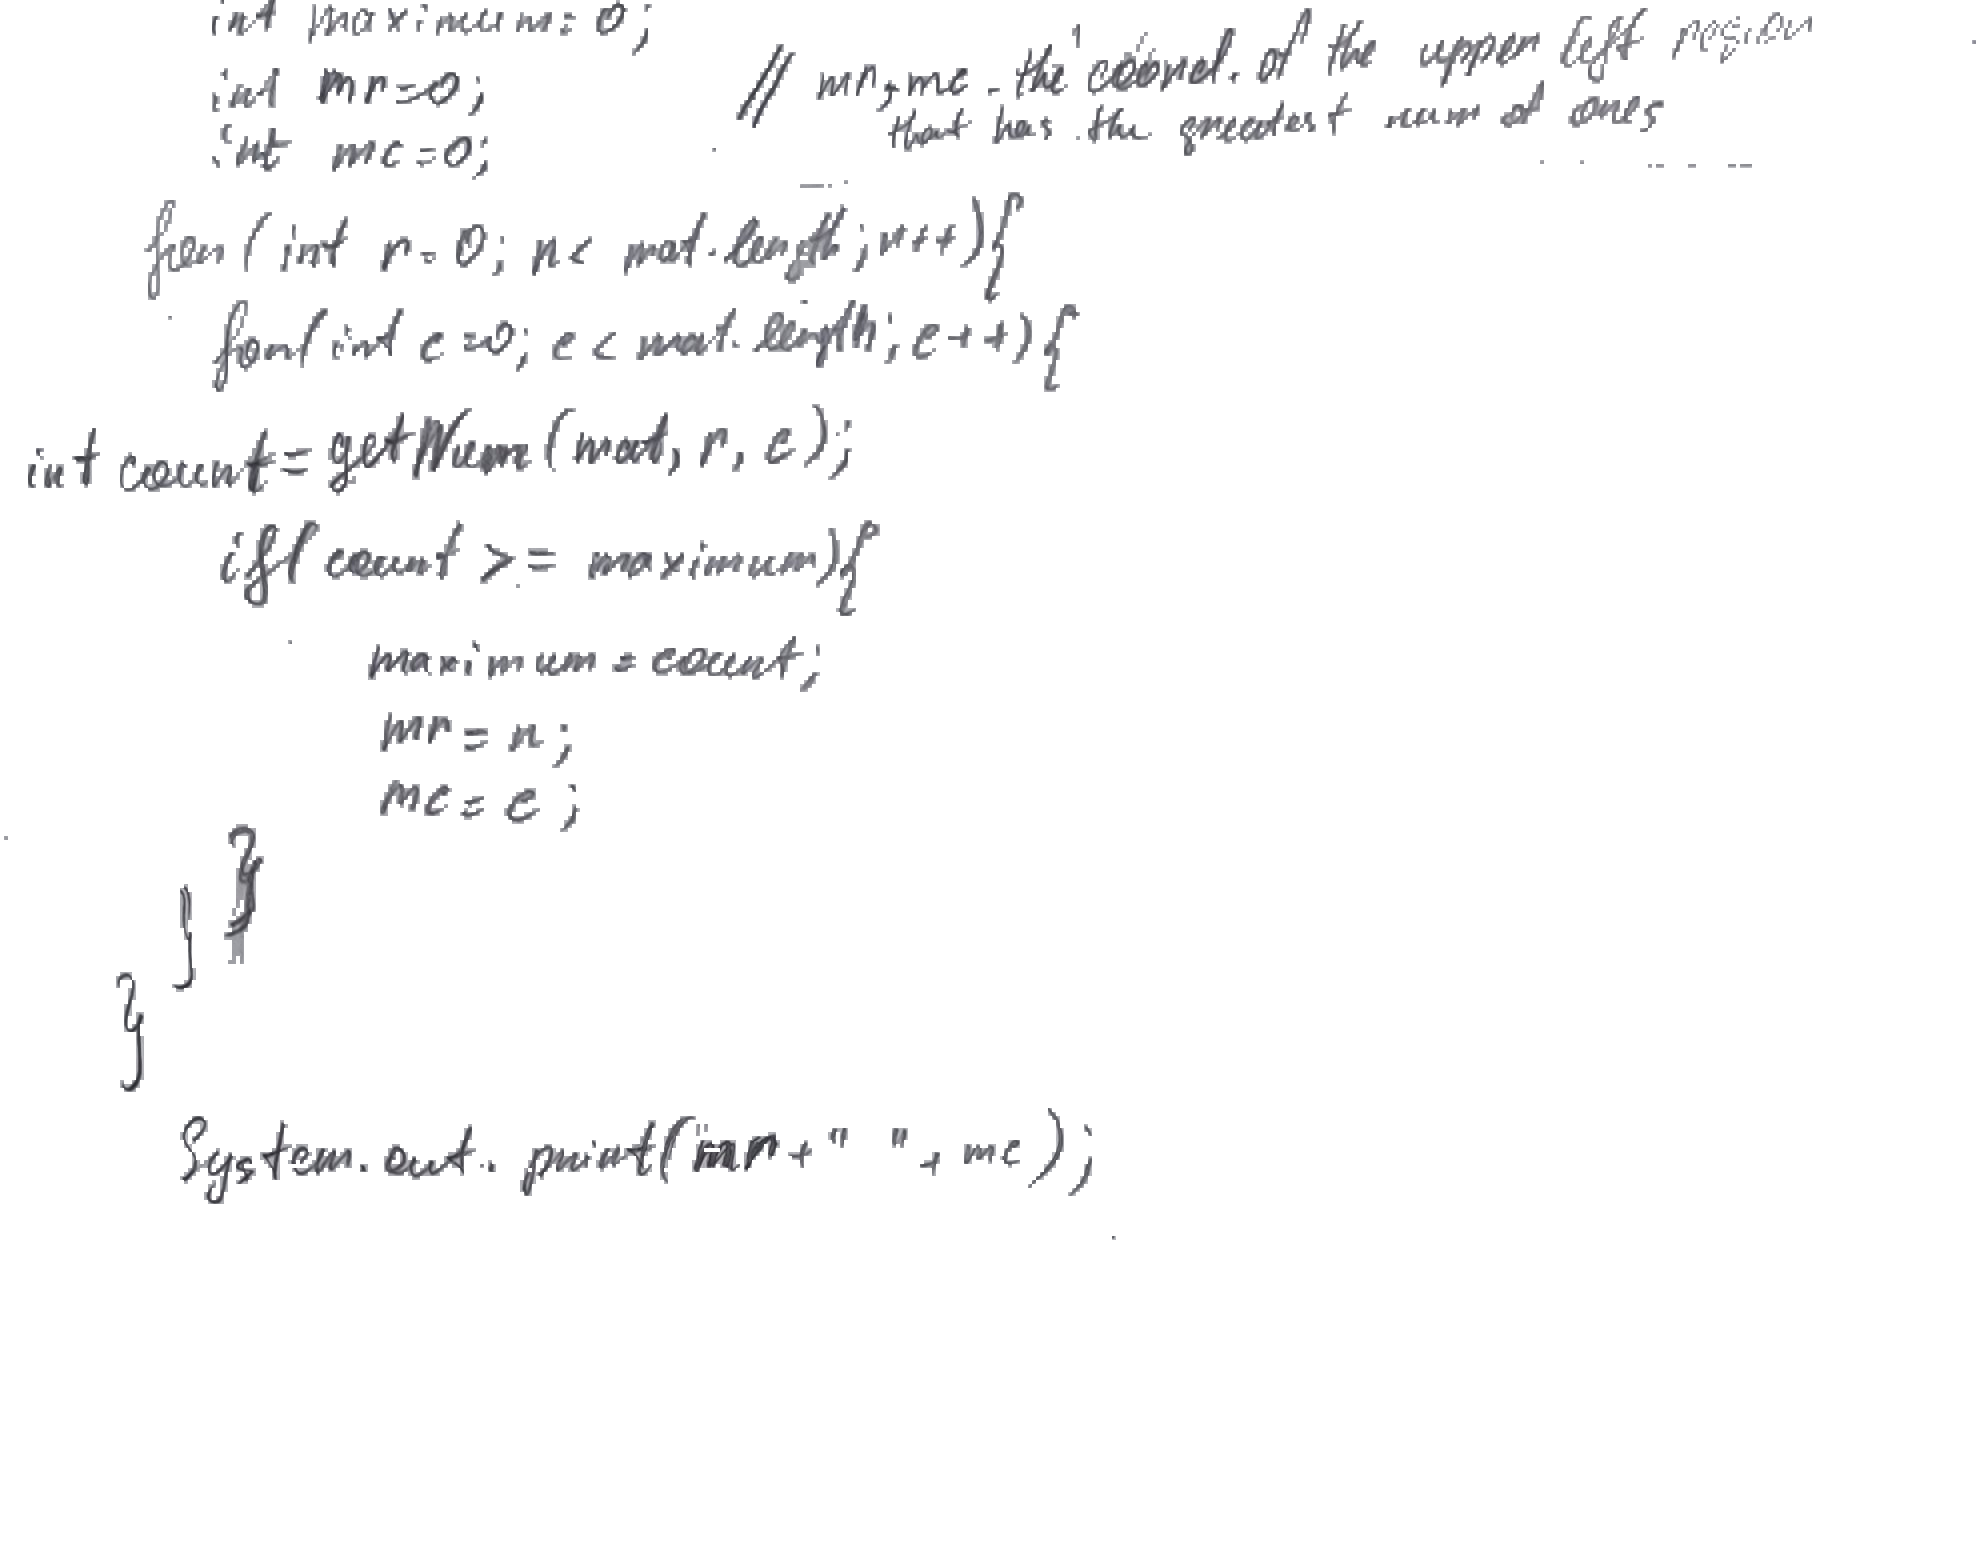 int maximum=0;
int mr=0; // mr, mc - the coord. of the upper left region
int mc=0; that has the greatest num of ones
for(int r=0; r< mat.length; r++){
for(int c=0; c< mat.length; c++){
int count= getNum(mat, r, c);
if( count >= maximum){
maximum = count;
mr = r;
mc = c;
}
}
}
System.out.print(mr+" "+ mc);